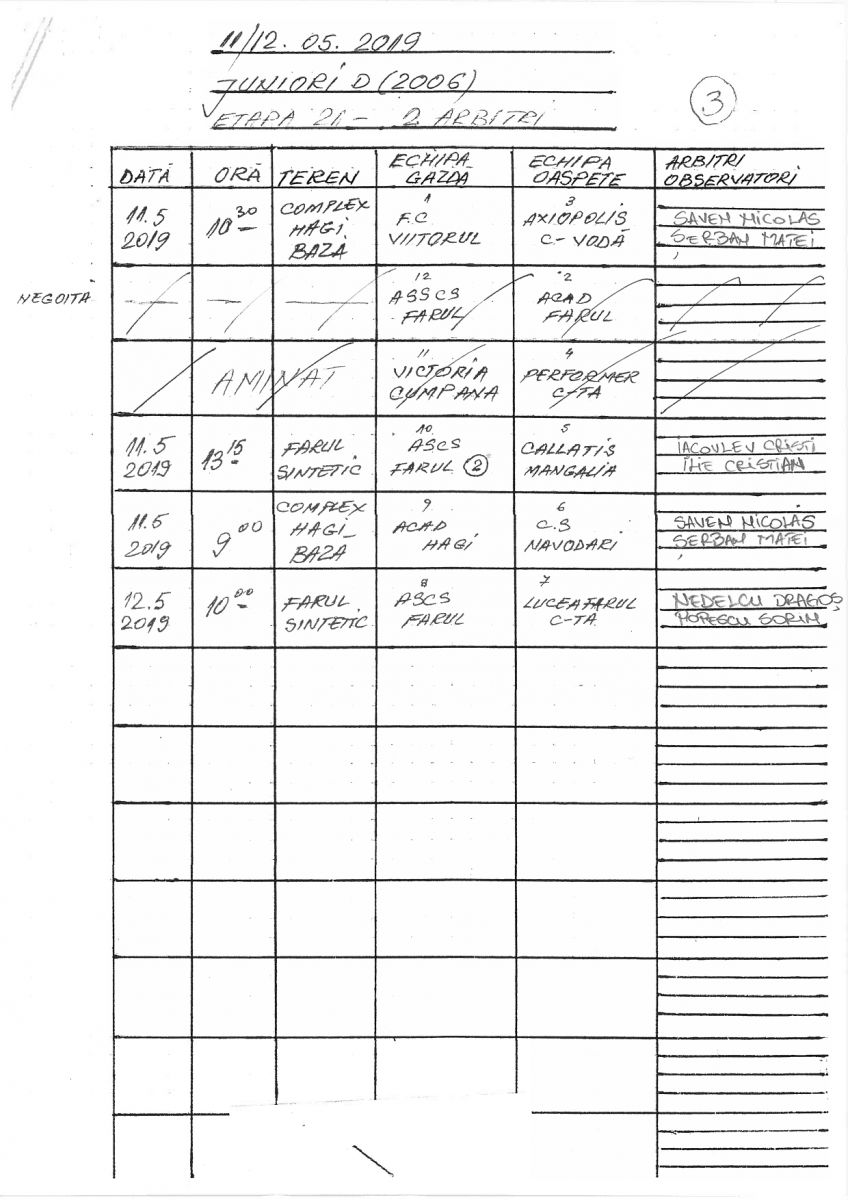 11/12. 05. 2019
JUNIORI D (2006)
ETAPA 21 - 2 ARBITRI
3
DATĂ ORĂ TEREN ECHIPA GAZDĂ ECHIPA OASPETE ARBITRI OBSERVATORI
11.5 2019
10 30
COMPLEX HAGI BAZA
1 F.C VIITORUL
3 AXIOPOLIS C-VODĂ
SAVEN NICOLAS
SERBAN MATEI
NEGOITĂ
— — —
12 ASSCS FARUL
2 ACAD FARUL
AMINAT
11 VICTORIA CUMPANA
4 PERFORMER C-TA
11.5 2019
13 15
FARUL SINTETIC
10 ASCS FARUL 2
5 CALLATIS MANGALIA
IACOVLEV CRISTI
ILIE CRISTIAN
11.5 2019
9 00
COMPLEX HAGI BAZA
9 ACAD HAGI
6 C.S NAVODARI
SAVEN NICOLAS
SERBAN MATEI
12.5 2019
10 00
FARUL SINTETIC
8 ASCS FARUL
7 LUCEAFARUL C-TA
NEDELCU DRAGOȘ
POPESCU SORIN